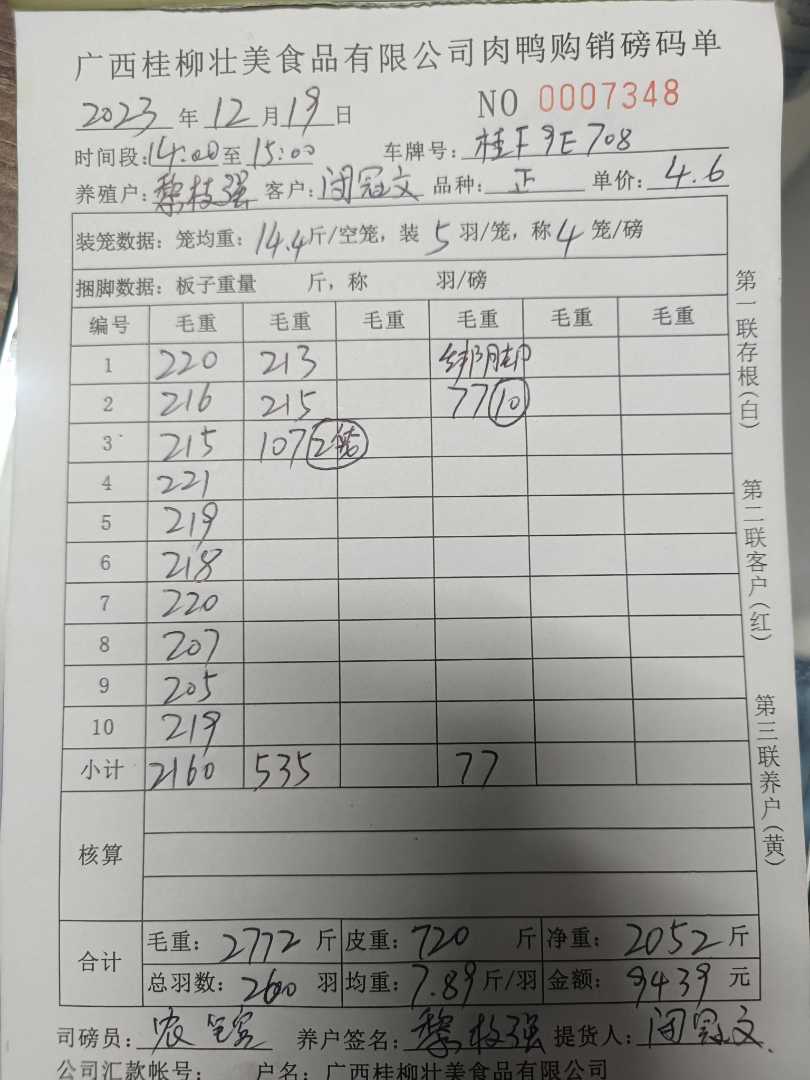 广西桂柳壮美食品有限公司肉鸭购销磅码单
2023 年 12 月 19 日 NO 0007348
时间段: 14:00 至 15:00 车牌号: 桂F9E708
养殖户: 黎枝强 客户: 闭冠文 品种: 正 单价: 4.6
装笼数据: 笼均重: 14.4 斤/空笼, 装 5 羽/笼, 称 4 笼/磅
捆脚数据: 板子重量 斤, 称 羽/磅
编号 毛重 毛重 毛重 毛重 毛重 毛重
1 220 213 绑脚
2 216 215 77 10
3 215 107 2笼
4 221
5 219
6 218
7 220
8 207
9 205
10 219
小计 2160 535 77
核算
合计 毛重: 2772 斤 皮重: 720 斤 净重: 2052 斤
总羽数: 260 羽 均重: 7.89 斤/羽 金额: 9439 元
司磅员: 农 养户签名: 黎枝强 提货人: 闭冠文
公司汇款帐号: 户名: 广西桂柳壮美食品有限公司
第一联存根(白)
第二联客户(红)
第三联养户(黄)